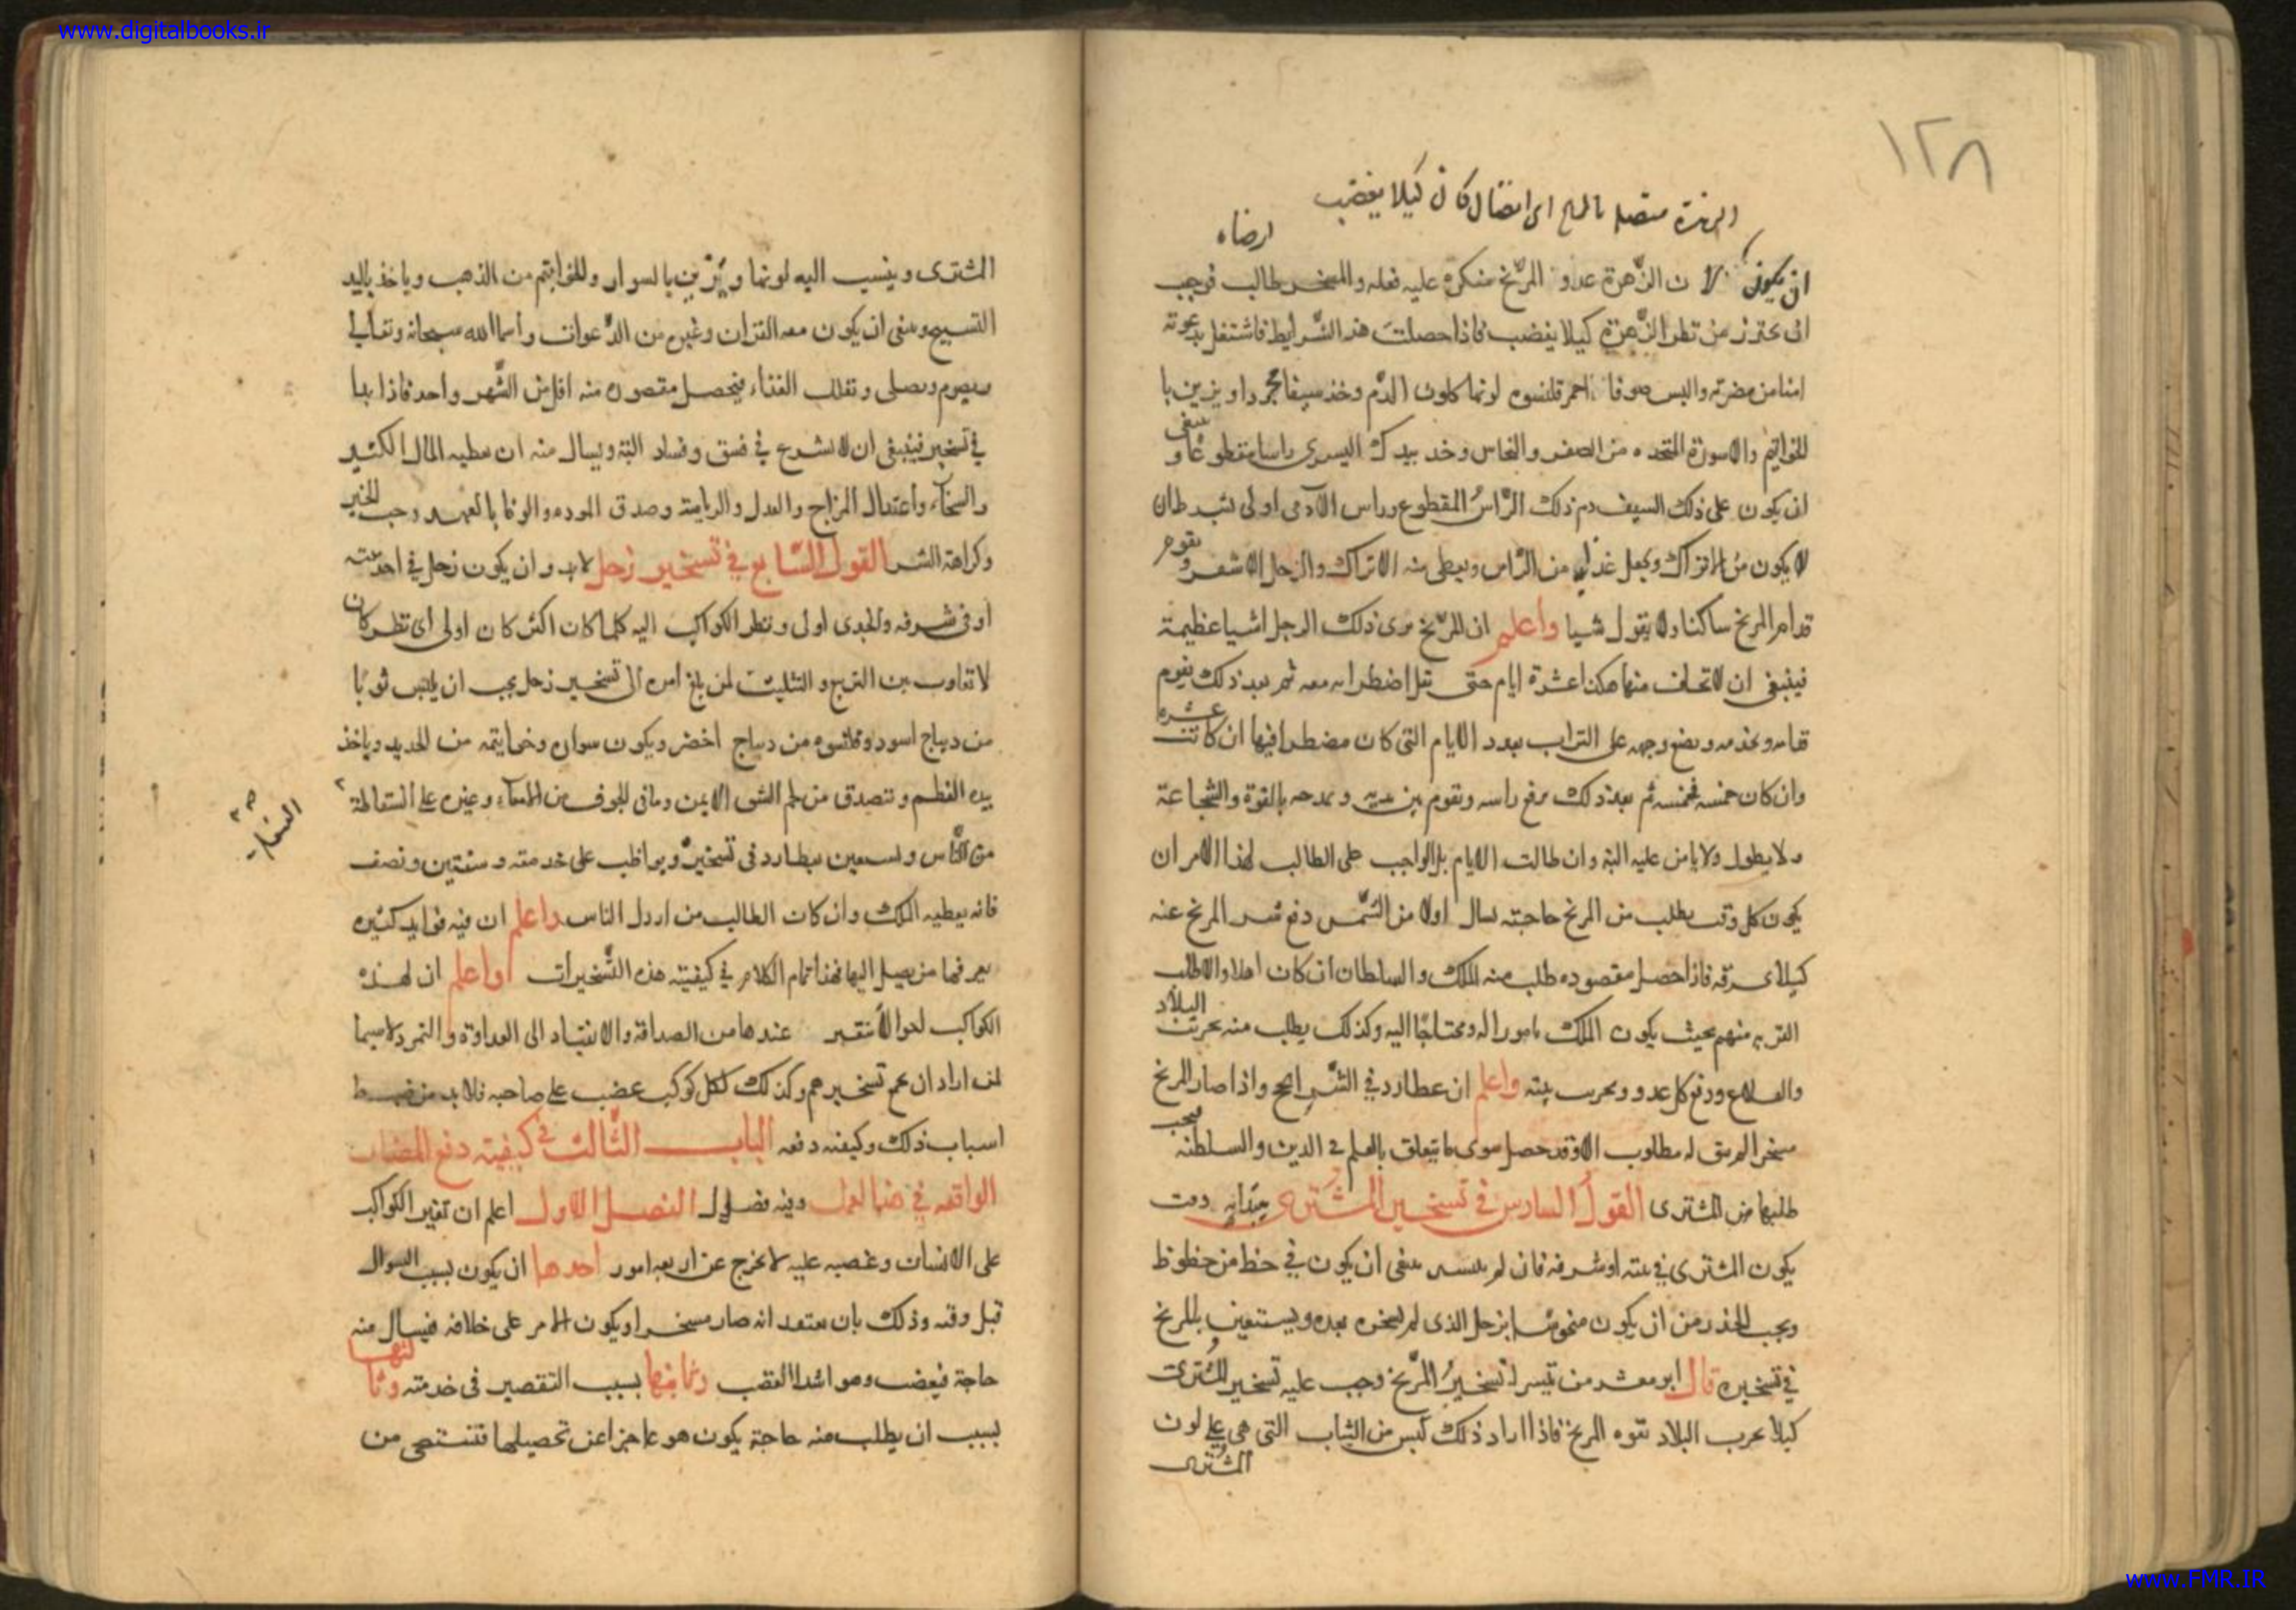 www.digitalbooks.ir
١٢٨
الزهرة متصله بالمريخ اى اتصال كان كيلا يغضب
ارضاه
ان يكون لان الزّهرة عدو المرّيخ منكره عليه فعله والمسخر طالب فوجب
ان يحترز من نظر الزّهرة كيلا يغضب فاذا حصلت هذه الشّرايط فاشتغل بدعوته
امنا من مضرته والبس صوفا احمر قلنسوه لونها كلون الدّم وخذ سيفا مجردا ويزين با
لخواتيم والاسورة المتخده من الصفر والنحاس وخد بيدك اليسرى راسا مقطوعا و ينبغى
ان يكون على ذلك السيف دم ذلك الرّاس المقطوع وراس الآدمى اولى بشرط ان
لا يكون من الاتراك ويجعل غذايه من الرّاس ويعطى منه الاتراك والرجل الاشقر ويقوم
قدام المريخ ساكنا ولا يقول شيا واعلم ان المرّيخ يرى ذلك الرجل اشيا عظيمة
فينبغى ان لا تخاف منها هكذا عشرة ايام حتى تقل اضطرابه معه ثم بعد ذلك يقوم
قدامه ويخدمه ويضع وجهه على التراب بعدد الايام التى كان مضطرا فيها ان كانت عشره
وان كان خمسه فخمسه ثم بعد ذلك يرفع راسه ويقوم بين يديه ويمدحه بالقوة والشجاعة
ولا يطول ولا يامن عليه البته وان طالت الايام بل الواجب على الطالب لهذا الامر ان
يكون كل وقت يطلب من المريخ حاجته يسال اولا من الشّمس دفع شر المريخ عنه
كيلا يحرقه فاذا حصل مقصوده طلب منه الملك والسلطان ان كان اهلا والا طلب
القربه منهم بحيث يكون الملك مامورا له ومحتاجًا اليه وكذلك يطلب منه تخريب البلاد
والقلاع ودفع كل عدو وتخريب بيته واعلم ان عطارد فى الشّرايح واذا صار المريخ
مسخرا لم يبق له مطلوب الا وقد حصل سوى ما يتعلق بالعلم فى الدين والسلطنه فيجب
طلبها من المشترى القول السادس فى تسخير المشترى بيتدابه وقت
يكون المشترى فى بيته او شرفه فان لم يتيسر ينبغى ان يكون فى حظ من حظوظ
ويجب الحذر من ان يكون منحوسًا بزحل الذى لم يسخره بعده ويستعين بالمريخ
فى تسخيره قال ابو معشر من تيسر له تسخير المرّيخ وجب عليه تسخير المشترى
كيلا يخرب البلاد بقوه المريخ فاذا اراد ذلك لبس من الثياب التى هى على لون
المشترى
المشترى وينسب اليه لونها ويزين بالسوار والخواتيم من الذهب وياخذ باليد
التسبيح وينبغى ان يكون معه القران وغيره من الدّعوات واسما الله سبحانه وتعالى
ويصوم ويصلى وتقلل الغذاء فيحصل مقصوده منه اقل من الشّهر واحد فاذا بدا
فى تسخيره فينبغى ان لا يشرع فى فسق وفساد البته ويسال منه ان يعطيه المال الكثير
والسخآء واعتدال المزاج والعدل والرياسة وصدق الموده والوفا بالعهد وحب الخير
وكراهة الشر القول السّابع فى تسخير زحل لا بد وان يكون زحل فى احد بيته
او فى شرفه والجدى اولى ونظر الكواكب اليه كلما كان اكثر كان اولى اى نظر كان
لا تفاوت بين التربيع والتثليث لمن بلغ امره الى تسخير زحل يجب ان يلبس ثوبًا
من ديباج اسود وقلنسوه من ديباج اخضر ويكون سواره وخواتيمه من الحديد وياخذ
بيده العظم ويتصدق من لحم الشق الايمن وما فى الجوف من الامعآء وغيره على السفالة
السفله صح
من النّاس ويستعين بعطارد فى تسخيره ويواظب على خدمته سنتين ونصف
فانه يعطيه الملك وان كان الطالب من اردل الناس واعلم ان فيه فوايد كثيره
يعرفها من يصل اليها فهذا تمام الكلام فى كيفيته هذه التّسخيرات واعلم ان لهذه
الكواكب احوالا تتغير عندها من الصداقة والانقياد الى العداوة والتمرد لا سيما
لمن اراد ان يحم تسخيرهم وكذلك لكل كوكب غضب على صاحبه فلا بد من ضبط
اسباب ذلك وكيفيه دفعه الباب الثّالث فى كيفيته دفع المضار
الواقعه فى هذا العمل وفيه فصول الفصل الاول اعلم ان تغير الكواكب
على الانسان وغضبه عليه لا يخرج عن اربعه امور احدها ان يكون بسبب السوال
قبل وقته وذلك بان يعتقد انه صار مسخرا ويكون الامر على خلافه فيسال منه
حاجة فيغضب وهو اشد الغضب وثانيها بسبب التقصير فى خدمته وثا
لثها
بسبب ان يطلب منه حاجة يكون هو عاجزا عن تحصيلها فتستقصى من
www.FMR.IR